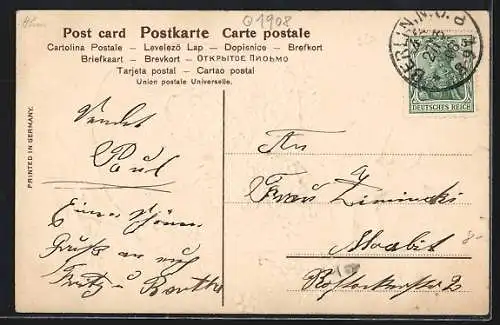 1908
Post card Postkarte Carte postale
Cartolina Postale – Levelező Lap – Dopisnice – Brefkort
Briefkaart – Brevkort – ОТКРЫТОЕ ПИСЬМО
Tarjeta postal – Cartao postal
Union postale Universelle.
PRINTED IN GERMANY.
BERLIN.N.O.
DEUTSCHES REICH
Sendet
Paul
Einen schönen
Gruß an euch
Fritz u Berthe
An
Frau Ziminski
Moabit
Rostockerstr 2